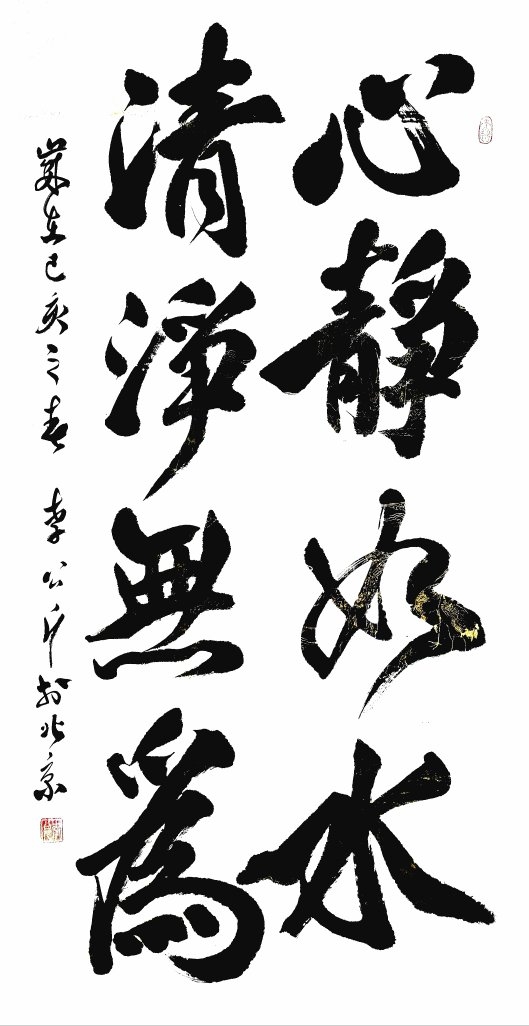 心靜如水
清淨無為
歲在己亥之春 李公 於北京